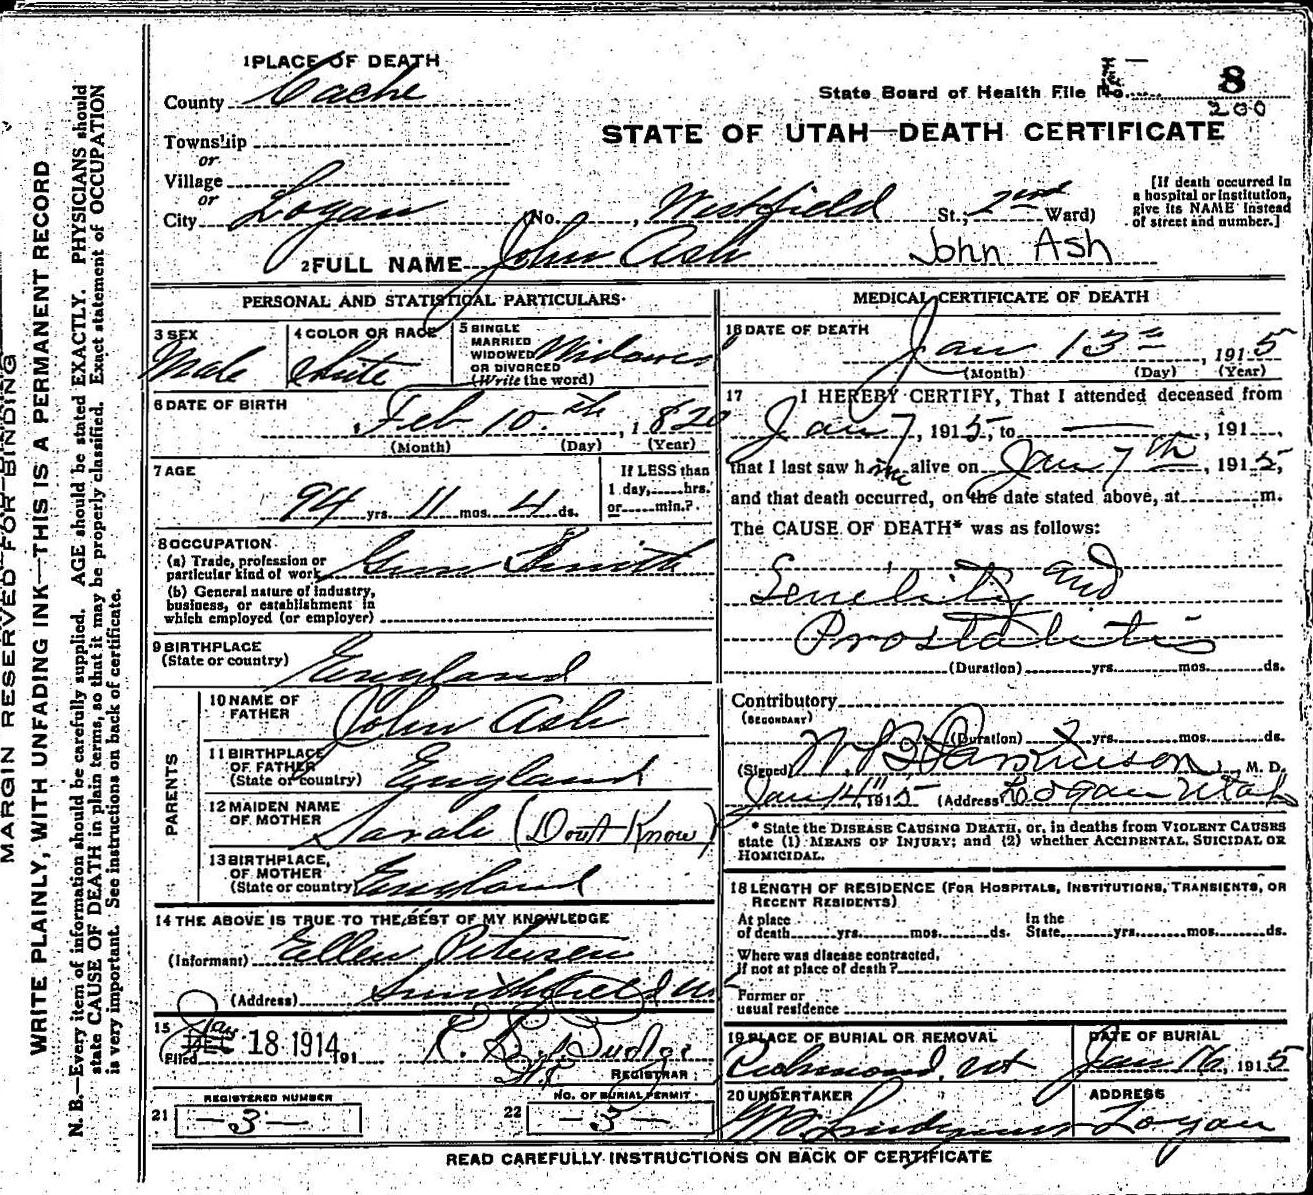 MARGIN RESERVED FOR BINDING
WRITE PLAINLY, WITH UNFADING INK—THIS IS A PERMANENT RECORD
N. B.—Every item of information should be carefully supplied. AGE should be stated EXACTLY. PHYSICIANS should
state CAUSE OF DEATH in plain terms, so that it may be properly classified. Exact statement of OCCUPATION
is very important. See instructions on back of certificate.
1 PLACE OF DEATH
County Cache
Township
or
Village
or
City Logan (No. , Westfield St.; 2nd Ward)
State Board of Health File No. 8
200
STATE OF UTAH—DEATH CERTIFICATE
[If death occurred in
a hospital or institution,
give its NAME instead
of street and number.]
2 FULL NAME John Ash John Ash
PERSONAL AND STATISTICAL PARTICULARS
3 SEX
Male
4 COLOR OR RACE
White
5 SINGLE
MARRIED
WIDOWED
OR DIVORCED
(Write the word)
Widower
6 DATE OF BIRTH
Feb 10th, 1820
(Month) (Day) (Year)
7 AGE
94 yrs. 11 mos. 4 ds.
If LESS than
1 day, hrs.
or min.?
8 OCCUPATION
(a) Trade, profession or
particular kind of work Gun Smith
(b) General nature of industry,
business, or establishment in
which employed (or employer)
9 BIRTHPLACE
(State or country) England
PARENTS
10 NAME OF
FATHER John Ash
11 BIRTHPLACE
OF FATHER
(State or country) England
12 MAIDEN NAME
OF MOTHER Sarah (Dont Know)
13 BIRTHPLACE,
OF MOTHER
(State or country) England
14 THE ABOVE IS TRUE TO THE BEST OF MY KNOWLEDGE
(Informant) Ellen Petersen
(Address) Smithfield Ut
15
Filed Jan DEC 18 1914 191
REGISTRAR
REGISTERED NUMBER
21 —3—
NO. OF BURIAL PERMIT
22 —3—
MEDICAL CERTIFICATE OF DEATH
16 DATE OF DEATH
Jan 13, 1915
(Month) (Day) (Year)
17 I HEREBY CERTIFY, That I attended deceased from
Jan 7, 1915, to —, 191 ,
that I last saw him alive on Jan 7th, 1915,
and that death occurred, on the date stated above, at m.
The CAUSE OF DEATH* was as follows:
Senility and
Prostatitis
(Duration) yrs. mos. ds.
Contributory
(SECONDARY)
(Duration) yrs. mos. ds.
(Signed) W. B. Parkinson, M. D.
Jan 14" 1915 (Address) Logan Utah
* State the DISEASE CAUSING DEATH, or, in deaths from VIOLENT CAUSES
state (1) MEANS OF INJURY; and (2) whether ACCIDENTAL, SUICIDAL OR
HOMICIDAL.
18 LENGTH OF RESIDENCE (FOR HOSPITALS, INSTITUTIONS, TRANSIENTS, OR
RECENT RESIDENTS)
At place
of death yrs. mos. ds.
In the
State yrs. mos. ds.
Where was disease contracted,
if not at place of death?
Former or
usual residence
19 PLACE OF BURIAL OR REMOVAL
Richmond, Ut
DATE OF BURIAL
Jan 16, 1915
20 UNDERTAKER
ADDRESS
Logan
READ CAREFULLY INSTRUCTIONS ON BACK OF CERTIFICATE